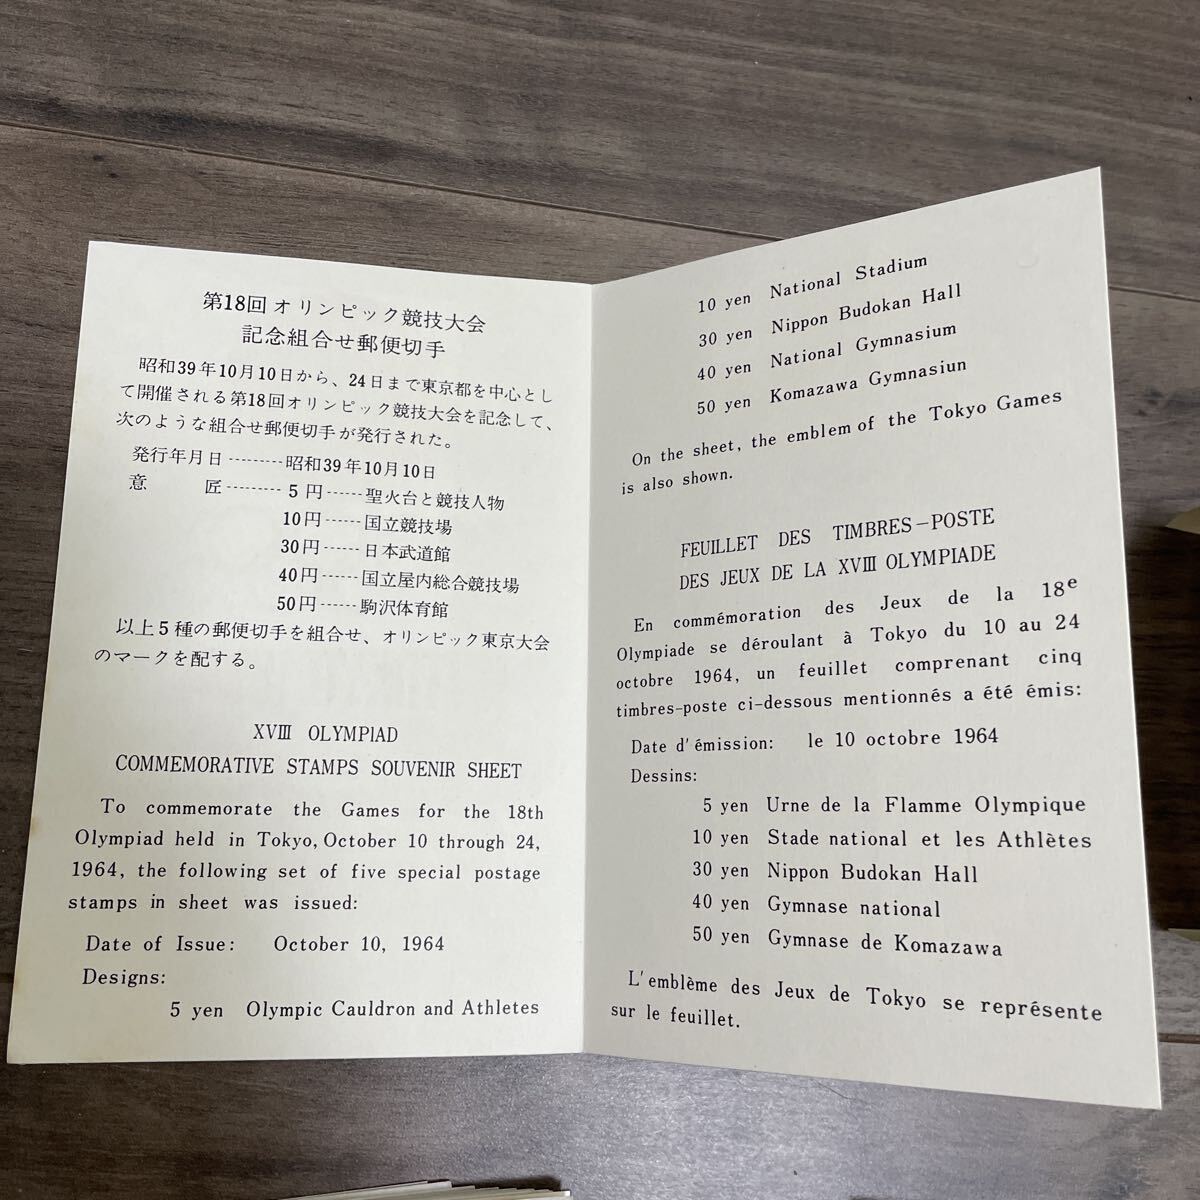 第18回オリンピック競技大会
記念組合せ郵便切手
昭和39年10月10日から、24日まで東京都を中心とし
て開催される第18回オリンピック競技大会を記念して、
次のような組合せ郵便切手が発行された。
発行年月日---------昭和39年10月10日
意　　匠--------- 5 円------聖火台と競技人物
10円------国立競技場
30円------日本武道館
40円------国立屋内総合競技場
50円------駒沢体育館
以上5種の郵便切手を組合せ、オリンピック東京大会
のマークを配する。
XVIII OLYMPIAD
COMMEMORATIVE STAMPS SOUVENIR SHEET
To commemorate the Games for the 18th
Olympiad held in Tokyo, October 10 through 24,
1964, the following set of five special postage
stamps in sheet was issued:
Date of Issue: October 10, 1964
Designs:
5 yen Olympic Cauldron and Athletes
10 yen National Stadium
30 yen Nippon Budokan Hall
40 yen National Gymnasium
50 yen Komazawa Gymnasiun
On the sheet, the emblem of the Tokyo Games
is also shown.
FEUILLET DES TIMBRES-POSTE
DES JEUX DE LA XVIII OLYMPIADE
En commémoration des Jeux de la 18e
Olympiade se déroulant à Tokyo du 10 au 24
octobre 1964, un feuillet comprenant cinq
timbres-poste ci-dessous mentionnés a été émis:
Date d'émission: le 10 octobre 1964
Dessins:
5 yen Urne de la Flamme Olympique
10 yen Stade national et les Athlètes
30 yen Nippon Budokan Hall
40 yen Gymnase national
50 yen Gymnase de Komazawa
L'emblème des Jeux de Tokyo se représente
sur le feuillet.